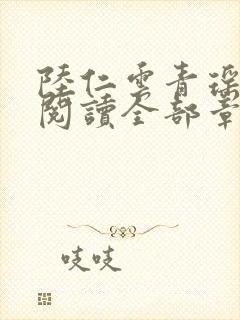 陸仁雲青瑤
閱讀全部章
吱吱